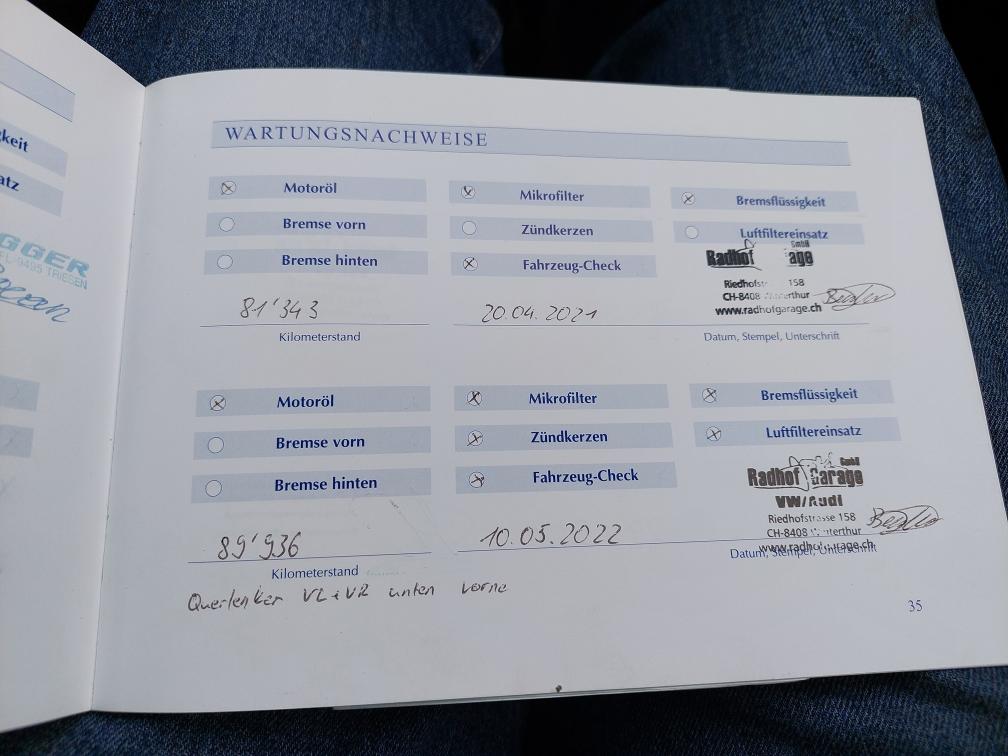 WARTUNGSNACHWEISE
Motoröl Mikrofilter Bremsflüssigkeit
Bremse vorn Zündkerzen Luftfiltereinsatz
Bremse hinten Fahrzeug-Check
Radhof age GmbH
Riedhofstr 158
CH-8408 erthur
www.radhofgarage.ch
81'343 20.04.2021
Kilometerstand Datum, Stempel, Unterschrift
Motoröl Mikrofilter Bremsflüssigkeit
Bremse vorn Zündkerzen Luftfiltereinsatz
Bremse hinten Fahrzeug-Check
Radhof Garage GmbH
VW/Audi
Riedhofstrasse 158
CH-8408 terthur
www.radhofgarage.ch
89'936 10.05.2022
Kilometerstand Datum, Stempel, Unterschrift
Querlenker VL+VR unten vorne
35
keit
atz
GGER
FL-9495 TRIESEN